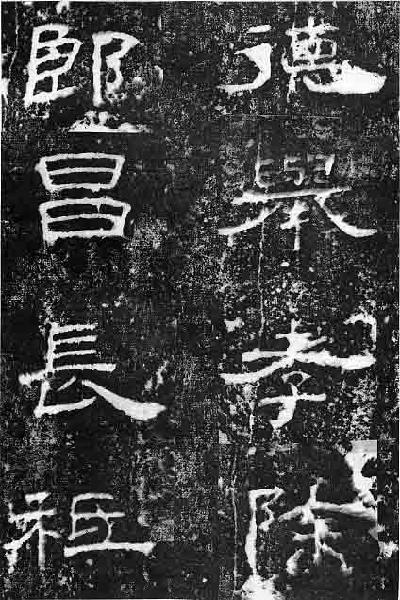 德舉孝除
郎昌長